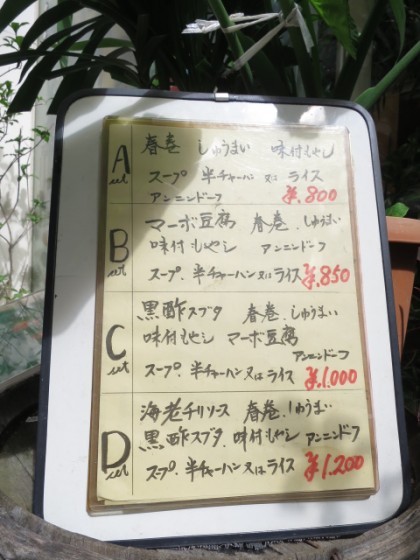 A set
春巻 しゅうまい 味付もやし
スープ 半チャーハン又はライス
アンニンドーフ ¥.800
B set
マーボ豆腐 春巻.しゅうまい
味付もやし アンニンドーフ
スープ.半チャーハン又はライス ¥.850
C set
黒酢スブタ 春巻.しゅうまい
味付もやし マーボ豆腐
アンニンドーフ
スープ.半チャーハン又はライス ¥.1.000
D set
海老チリソース 春巻.しゅうまい
黒酢スブタ.味付もやし アンニンドーフ
スープ.半チャーハン又はライス ¥1.200